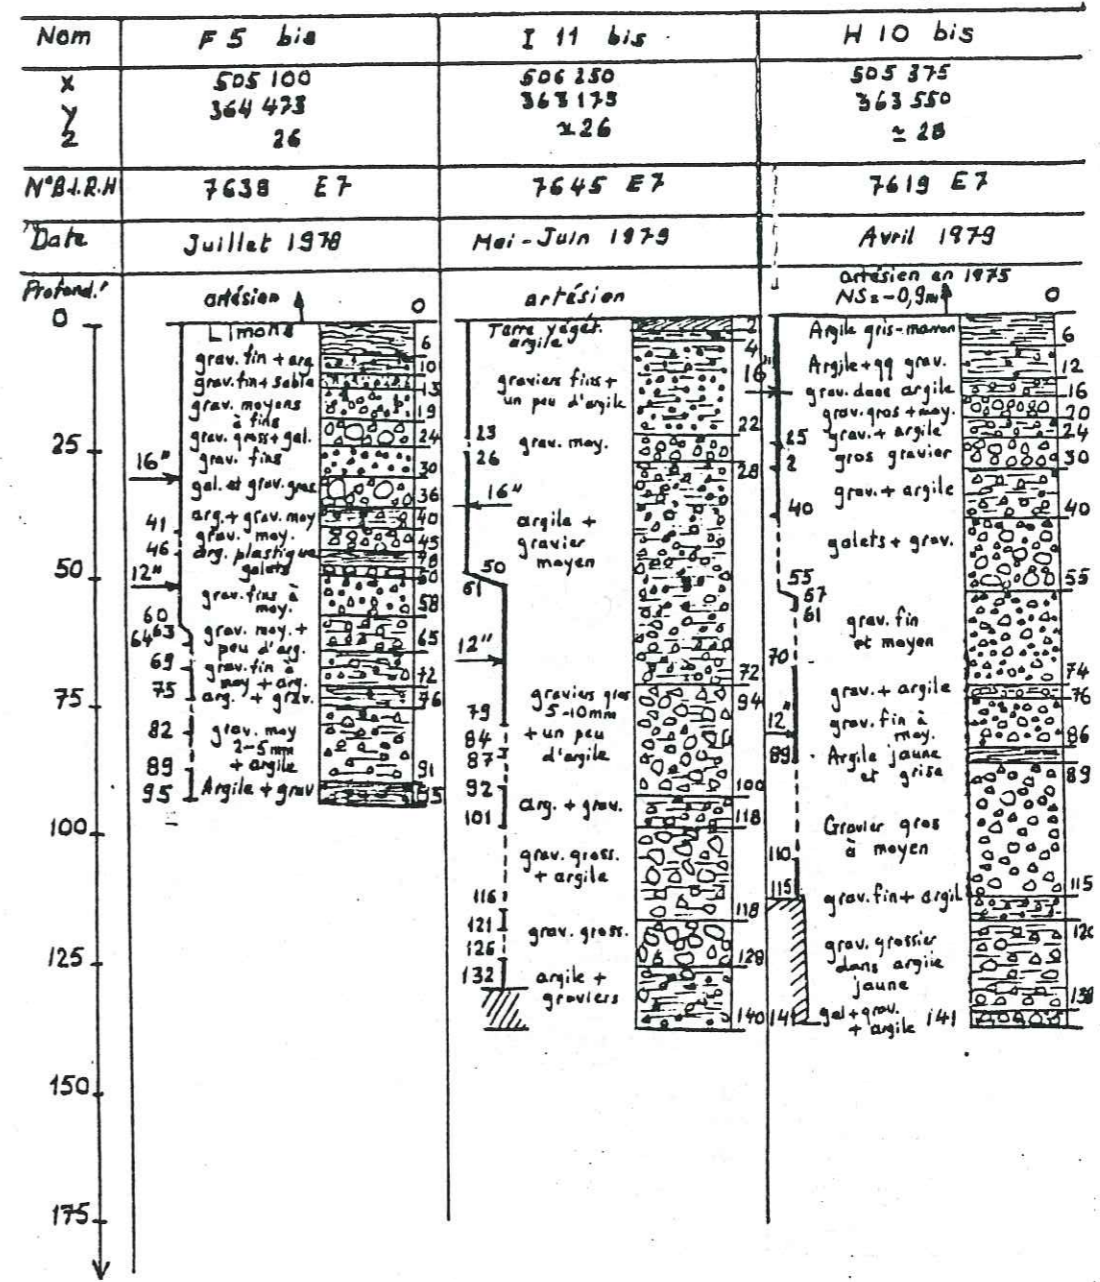 Nom F 5 bis I 11 bis. H 10 bis
X 505 100 506 250 505 375
Y 364 473 363 175 363 550
Z 26 ≃26 ≃ 28
N°B.I.R.H 7638 E7 7645 E7 7619 E7
Date Juillet 1978 Mai-Juin 1979 Avril 1979
Profond.r
0
25
50
75
100
125
150
175
artésien 0
Limons
6
grav. fin + arg
10
grav. fin + sable
13
grav. moyens
à fins
19
grav. gross + gal.
24
grav. fins
30
16"
gal. et grav. gros
36
arg. + grav. moy
40
41
grav. moy.
45
46
arg. plastique
48
galets
50
12"
grav. fins à
moy.
58
60
63
64
grav. moy. +
peu d'arg.
65
69
grav. fin à
moy + arg.
72
75
arg. + grav.
76
82
grav. moy
2-5mm
+ argile
89
91
95
Argile + grav
95
artésien
Terre végét.
2
argile
4
16"
graviers fins +
un peu d'argile
22
23
grav. moy.
26
28
16"
argile +
gravier
moyen
50
51
12"
72
graviers gros
5-10mm
+ un peu
d'argile
94
79
84
87
92
100
101
arg. + grav.
118
grav. gross.
+ argile
116
118
121
grav. gross.
126
128
132
argile +
graviers
140
artésien en 1975
NS=-0,9m 0
Argile gris-marron
6
Argile + qq grav.
12
grav. dans argile
16
grav. gros + moy.
20
grav. + argile
24
25
gros gravier
30
2
grav. + argile
40
40
galets + grav.
55
55
57
61
grav. fin
et moyen
70
74
grav. + argile
76
12"
grav. fin à
moy.
86
89
Argile jaune
et grise
89
Gravier gros
à moyen
110
115
115
grav. fin + argil
grav. grossier
dans argile
jaune
138
141
gal + grav.
+ argile 141